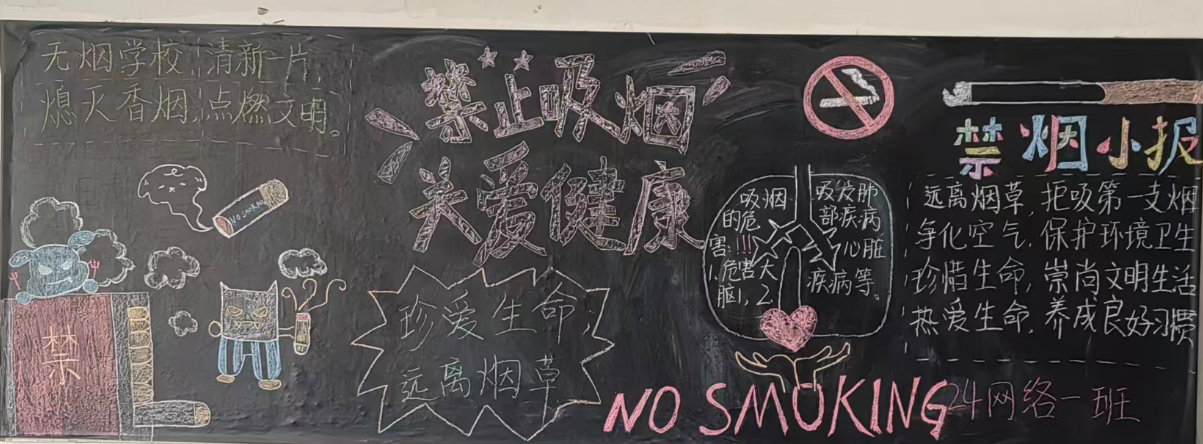 无烟学校,清新一片,
熄灭香烟,点燃文明。
No smoking
禁
禁止吸烟
关爱健康
珍爱生命,
远离烟草
吸烟
的危
害!!!
1.危害大
脑,2.
吸发肺
部疾病
心脏
疾病等。
NO SMOKING
24网络一班
禁烟小报
远离烟草,拒吸第一支烟
净化空气,保护环境卫生
珍惜生命,崇尚文明生活
热爱生命,养成良好习惯